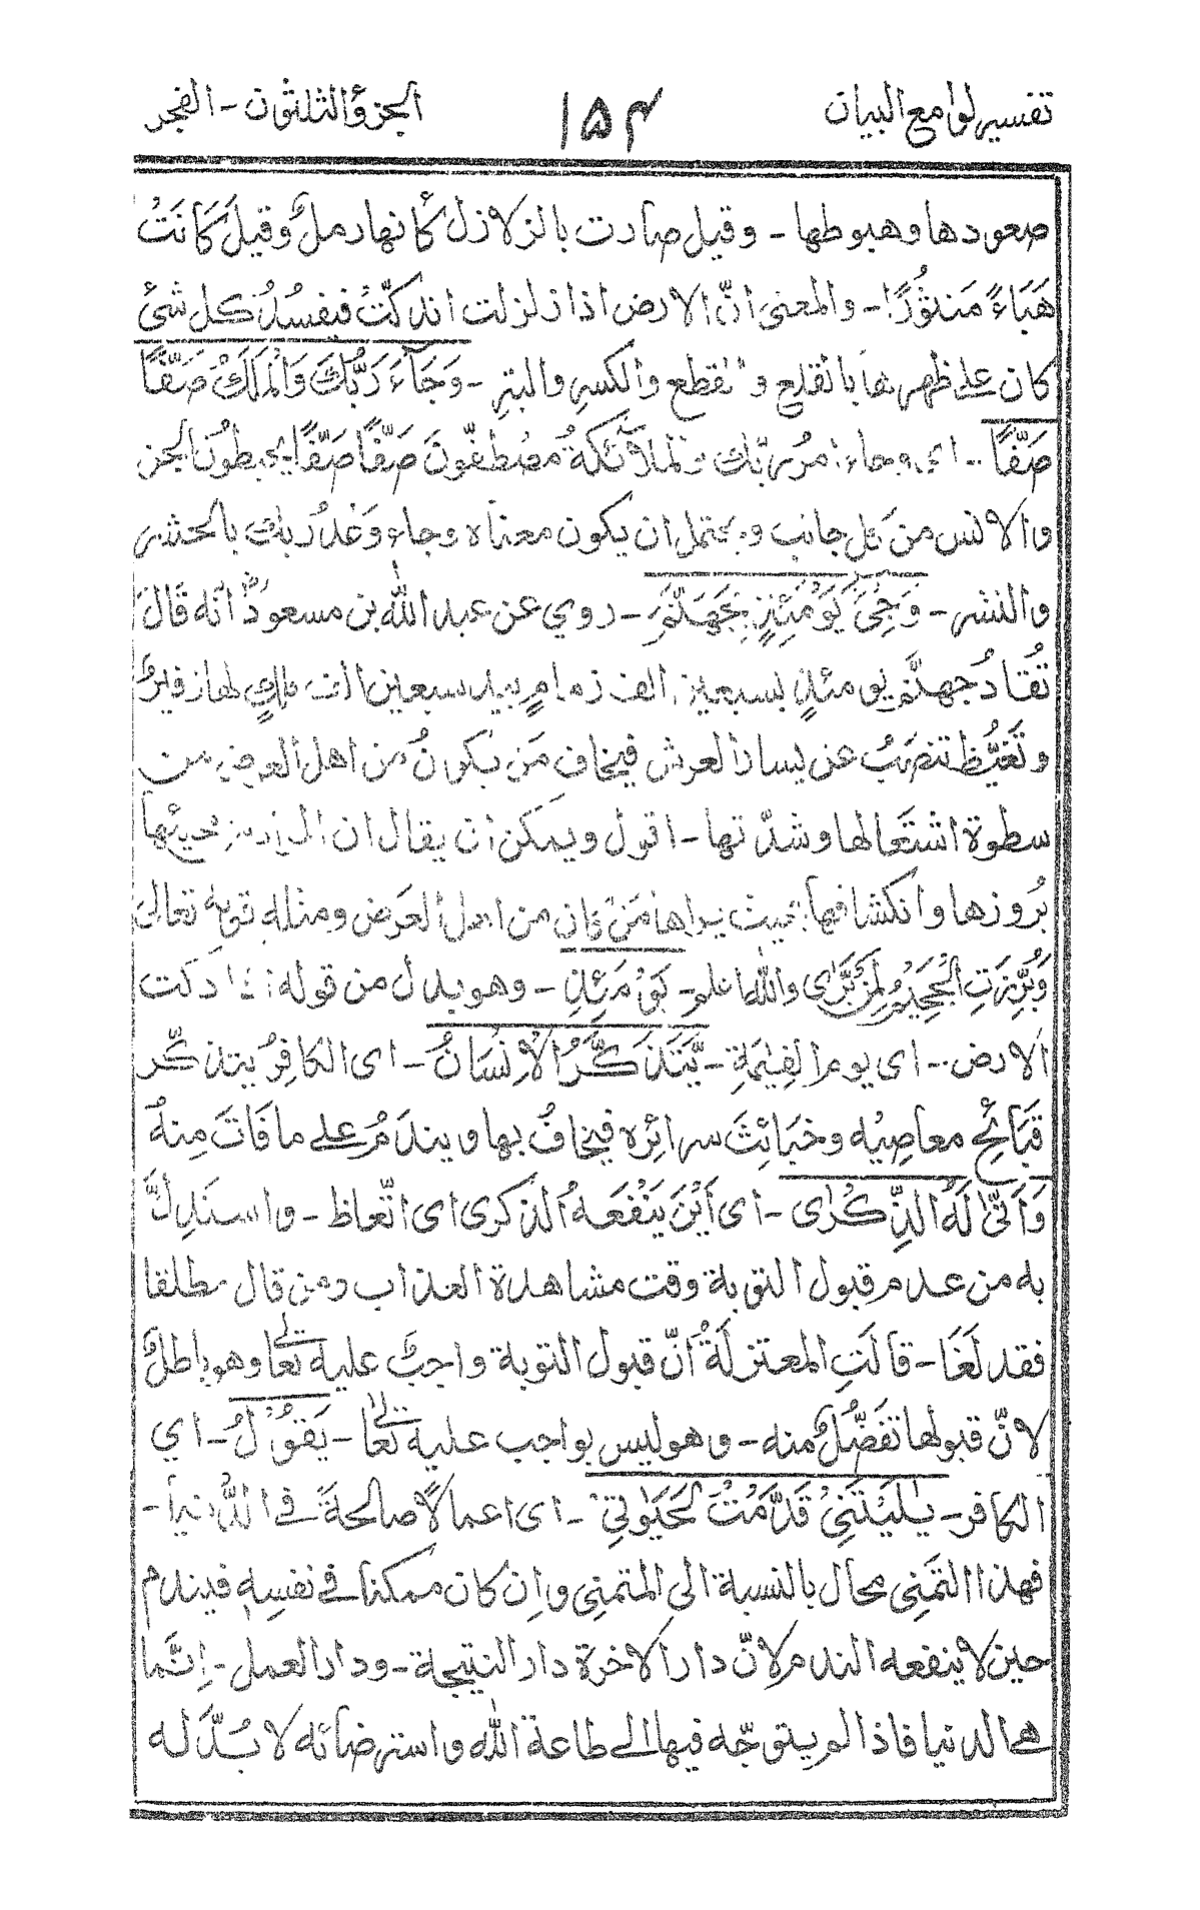 تفسير لوامع البيان ١٥٤ الجزء الثلثون - الفجر
صعودها وهبوطها - وقيل صارت بالزلازل كأنها رملٌ وقيل كَانَتْ
هَبَاءً مَنثُورًا - والمعنى انّ الارض اذا زلزلت اندكّتْ فيفسُدُ كل شئ
كان على ظهرها بالقلع والقطع والكسرِ والبترِ - وَجَآءَ رَبُّكَ وَالْمَلَكُ صَفًّا
صَفًّا - اى وجاء امرُ ربّك والملآئكةُ مصُطفّونَ صَفًّا صَفًّا يحيطونُ الجن
والانس من كل جانب ويحتمل ان يكون معناه وجاء وَعْدُ ربك بالحشر
والنشر - وَجِئَ يَوْمَئِذٍ بِجَهَنَّمَ - روي عن عبد الله بن مسعودؓ انه قالَ
تُقَادُ جهنّم يومئذٍ بسبعين الف زمامٍ بيد سبعين الف ملكٍ لها زفيرٌ
وتَغَيُّظ تنصَبُ عن يسار العرش فيخاف مَن يكونُ من اهل العرض من
سطوة اشتعالها وشدّتها - اقول ويمكن ان يقال ان المراد من مجيئها
بُروزها وانكشافها بحيث يراها مَنْ كان من اهل العرَض ومثله قوله تعالى
وَبُرِّزَتِ الْجَحِيْمُ لِمَنْ يَّرٰى والله اعلم - يَوْمَئِذٍ - وهو بدل من قوله اذا دكت
الارض - اى يوم القِيٰمَةِ - يَّتَذَكَّرُ الْاِنْسَانُ - اى الكافِرُ يتذكّر
قبَائحَ معاصِيْه وخبَائِثَ سرائِرِه فيخافُ بها ويندَمُ على ما فَاتَ مِنهُ
وَاَنّٰى لَهُ الذِّكْرٰى - اى اَيْنَ يَنْفَعهُ الذكرى اى اتّعاظ - واستدِلَّ
به من عدم قبول التوبة وقت مشاهدة العذاب ومن قال مطلقا
فقد لَغَا - قالَتِ المعتزلَةُ انّ قبول التوبة واجبٌ عليه تعالى وهو باطلٌ
لانّ قبولها تفَضّلٌ منه - وهو ليس بواجب عليه تعالى - يَقُوْلُ - اي
الكافر - يٰلَيْتَنِىْ قَدَّمْتُ لِحَيَوٰتِىْ - اى اعمالًا صالحةً فى الدُّنيا -
فهذا التمَنِى محال بالنسبة الى المتمنِى واِن كان ممكنا فى نفسِه فيندم
حين لا ينفعه الندم لانّ دار الاخرة دار النتيجة - ودار العمل - اِنّما
هى الدنيا فاذا لم يتوجّه فيها الى طاعة الله واسترضائه لا بُدّ له